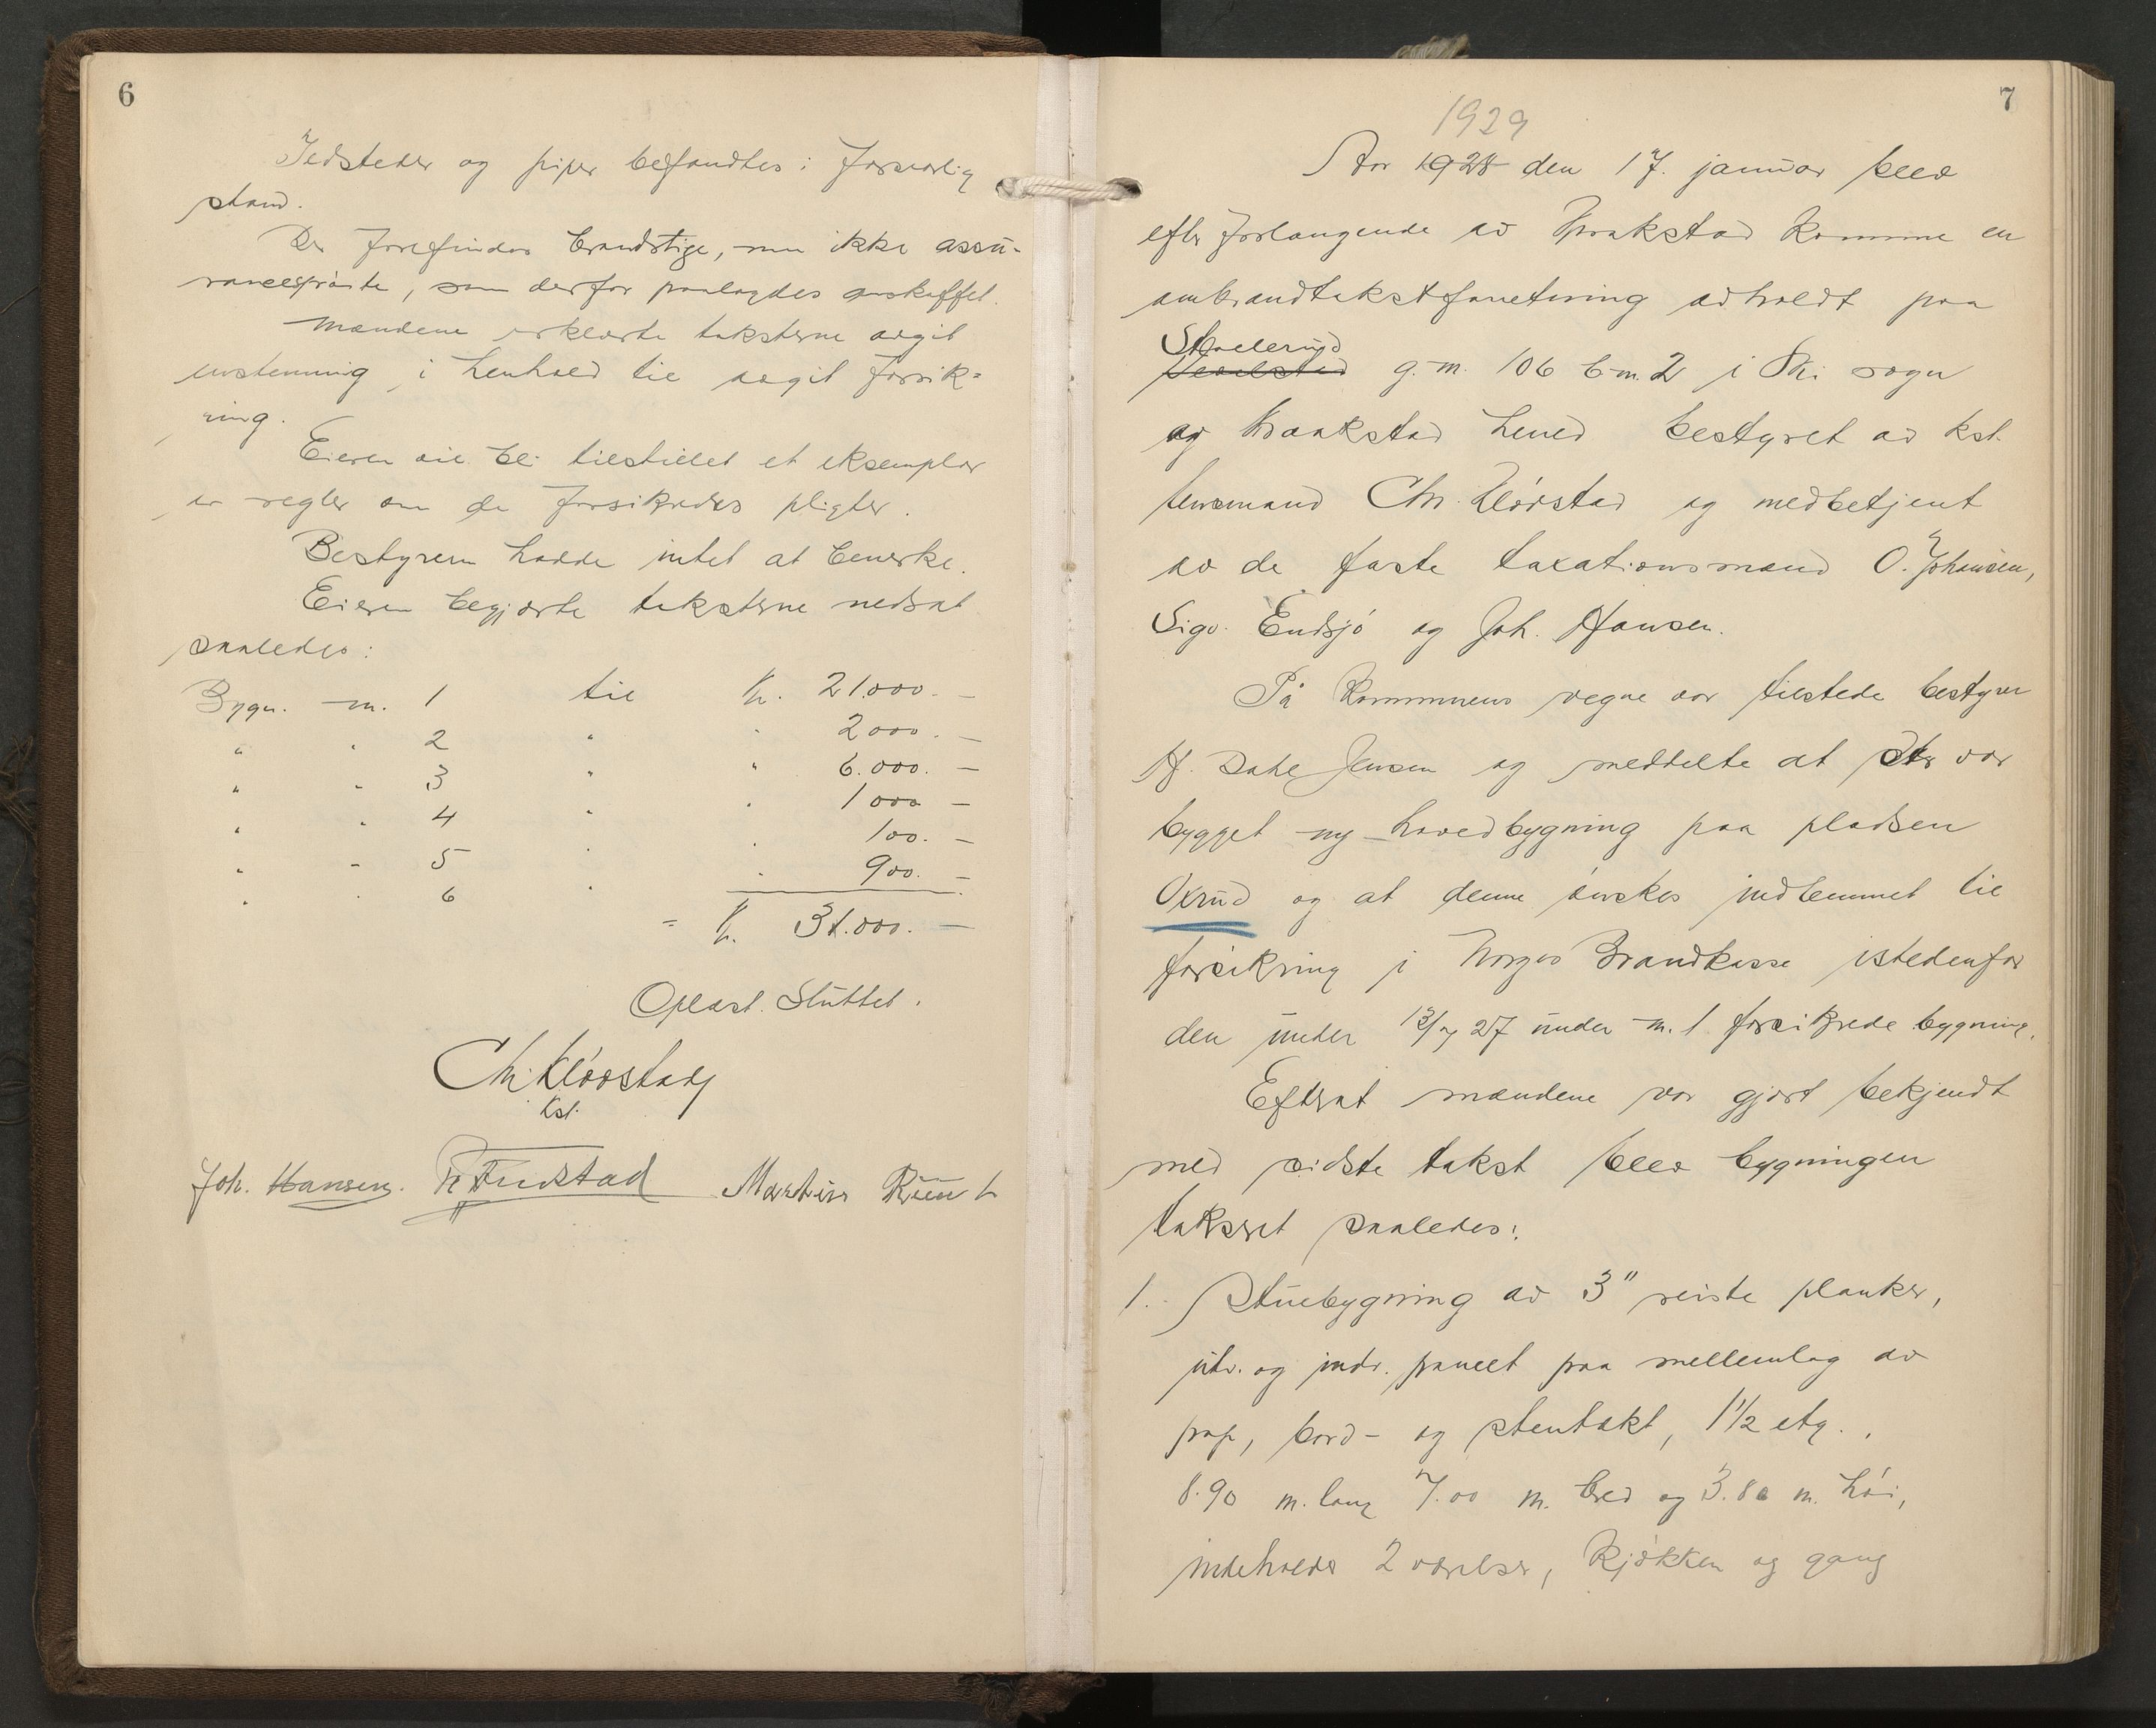 6
Ildsteder og piper befandtes i forsvarlig
stand.
Der forefindes brandstige, men ikke assu-
rancesprøite, som derfor paalagdes anskaffet.
Mændene erklærte taksterne avgit
enstemmig i henhold til avgit forsik-
ring.
Eieren vil bli tilstillet et eksemplar
av regler om de forsikredes pligter.
Bestyreren hadde intet at bemerke.
Eieren begjærte taksterne nedsat
saaledes:
Bygn. nr. 1 til kr. 21.000. -
" " 2 " " 2000. -
" " 3 " " 6.000. -
" " 4 " " 1000 -
" " 5 " " 100. -
" " 6 " " 900. -
= kr. 31.000. -
Oplæst. Sluttet.
Chr. Kløvstad
Kst.
Joh. Hansen. Martin Ruud
7
1929
Aar 1928 den 17. januar blev
efter forlangende av Kraakstad Komune en
ombrandtakstforretning avholdt paa
Skollerud
g.nr. 106 b.nr. 2 i Ski sogn
og Kraakstad herred bestyret av kst.
lensmand Chr. Kløvstad og medbetjent
av de faste taxationsmænd O. Johansen,
Sigv. Endsjø og Joh. Hansen.
På Kommunens vegne var tilstede bestyrer
H. Dahl Jensen og meddelte at der var
bygget ny hovedbygning paa pladsen
Oxrud og at denne ønskes indlemmet til
forsikring i Norges Brandkasse istedenfor
den under 13/7 27 under nr. 1 forsikrede bygning.
Efterat mændene var gjort bekjendt
med sidste takst blev bygningen
taksert saaledes:
1. Stuebygning av 3" reiste planker,
utv. og indv. panelt paa mellemlag av
pap, bord- og stentækt, 1½ etg.,
8.90 m. lang 7.00 m. bred og 3.80 m. høi,
indeholder 2 værelser, kjøkken og gang